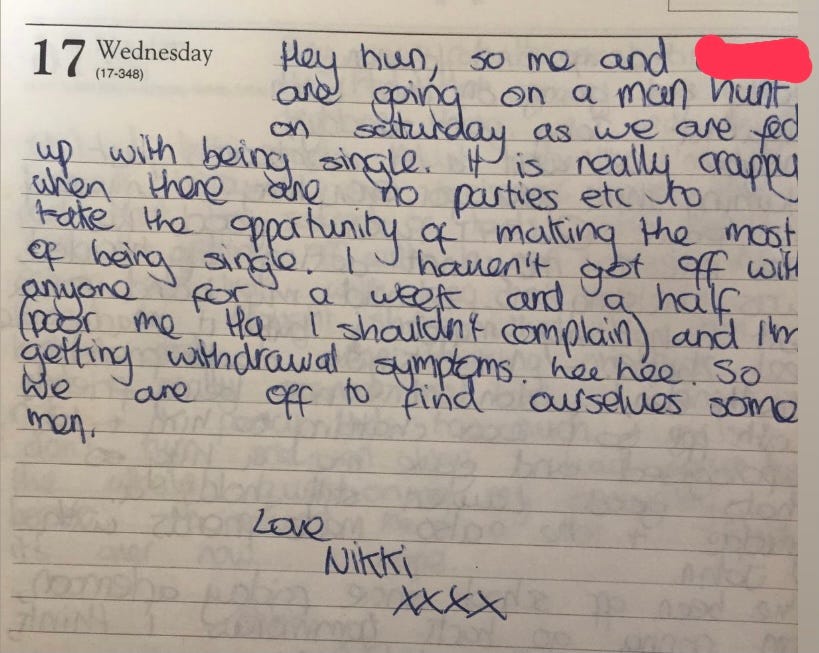 17 Wednesday
(17-348)
Hey hun, so me and
are going on a man hunt
on saturday as we are fed
up with being single. It is really crappy
when there are no parties etc to
take the opportunity of making the most
of being single. I haven't got off with
anyone for a week and a half
(poor me Ha I shouldn't complain) and I'm
getting withdrawal symptoms. hee hee. So
we are off to find ourselves some
men.
Love
Nikki
xxxx